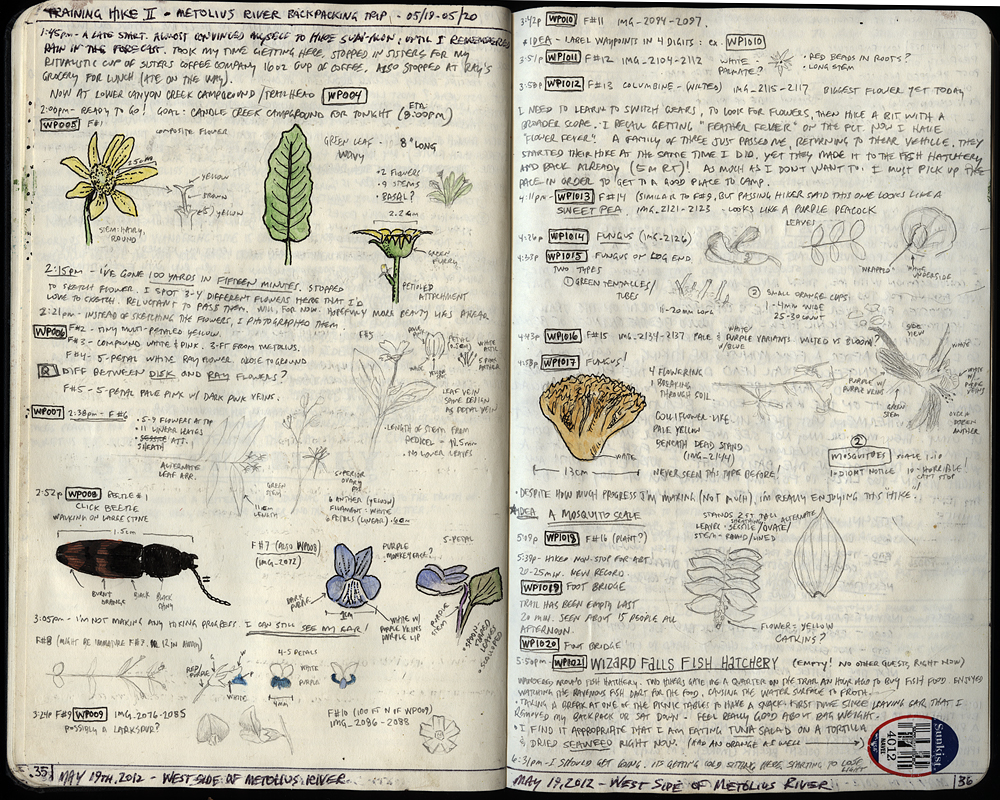 TRAINING HIKE II - METOLIUS RIVER BACKPACKING TRIP - 05/19-05/20
1:45pm - A LATE START. ALMOST CONVINCED MYSELF TO HIKE SUN-MON, UNTIL I REMEMBERED
RAIN IN THE FORECAST. TOOK MY TIME GETTING HERE. STOPPED IN SISTERS FOR MY
RITUALISTIC CUP OF SISTERS COFFEE COMPANY 16OZ CUP OF COFFEE. ALSO STOPPED AT RAY'S
GROCERY FOR LUNCH (ATE ON THE WAY).
NOW AT LOWER CANYON CREEK CAMPGROUND/TRAILHEAD WP004
2:00pm - READY TO GO! GOAL: CANDLE CREEK CAMPGROUND FOR TONIGHT (ETA: 8:00pm)
WP005 F#1
COMPOSITE FLOWER
2.5cm
YELLOW
BROWN
YELLOW
SEMI-HAIRY,
ROUND
GREEN LEAF
WAVY
8" LONG
•2 FLOWERS
•9 STEMS
•BASAL?
2.2cm
GREEN
FURRY
PETIOLED
ATTACHMENT
2:15pm - I'VE GONE 100 YARDS IN FIFTEEN MINUTES. STOPPED
TO SKETCH FLOWER. I SPOT 3-4 DIFFERENT FLOWERS HERE THAT I'D
LOVE TO SKETCH. RELUCTANT TO PASS THEM. WILL, FOR NOW. HOPEFULLY MORE BEAUTY WAS AHEAD.
2:21pm - INSTEAD OF SKETCHING THE FLOWERS, I PHOTOGRAPHED THEM.
WP006 F#2 - TINY MULTI-PETALED YELLOW.
F#3 - COMPOUND WHITE & PINK. 3-FT FROM METOLIUS.
F#4 - 5-PETAL WHITE RAY FLOWER CLOSE TO GROUND
Q DIFF BETWEEN DISK AND RAY FLOWERS?
F#5 - 5-PETAL PALE PINK W/ DARK PINK VEINS.
F#5
LEAF VEIN
SAME DESIGN
AS PETAL VEIN
WP007 2:38pm - F#6
•5-9 FLOWERS AT TOP
•11 LINEAR LEAVES
ATT.
SHEATH
ALTERNATE
LEAF ARR.
GREEN
STEM
11cm
LENGTH
•LENGTH OF STEM FROM
PEDICEL
•NO LOWER LEAVES
SUPERIOR
OVARY
6 ANTHER (YELLOW)
FILAMENT: WHITE
6 PETALS (LINEAR)
2:52p WP008 BEETLE #1
CLICK BEETLE
WALKING ON LARGE STONE
1.5cm
BURNT
ORANGE
BLACK
BLACK
SHINY
F#7 (ALSO WP008)
(IMG-2072)
PURPLE
MONKEYFACE?
5-PETAL
DARK
PURPLE
1cm
WHITE W/
PURPLE VEINS
PURPLE LIP
PURPLE
STEM
3:05pm - I'M NOT MAKING ANY HIKING PROGRESS. I CAN STILL SEE MY CAR!
F#8 (MIGHT BE IMMATURE F#7
4-5 PETALS
WHITE
WHITE
PURPLE
4mm
3:24p F#9 WP009 IMG-2076-2085
POSSIBLY A LARKSPUR?
F#10 (100 FT N OF WP009)
IMG-2086-2088
35 MAY 19TH, 2012 - WEST SIDE OF METOLIUS RIVER.
3:42p WP010 F#11 IMG-2094-2097.
*IDEA - LABEL WAYPOINTS IN 4 DIGITS: ex. WP1010
3:51p WP1011 F#12 IMG-2104-2112
WHITE -
PALMATE?
•RED BEADS IN ROOTS?
•LONG STEM
3:58p WP1012 F#13 COLUMBINE - (WILTED) IMG-2115-2117 BIGGEST FLOWER YET TODAY
I NEED TO LEARN TO SWITCH GEARS, TO LOOK FOR FLOWERS, THEN HIKE A BIT WITH A
BROADER SCOPE. I RECALL GETTING "FEATHER FEVER" ON THE PCT. NOW I HAVE
"FLOWER FEVER". A FAMILY OF THREE JUST PASSED ME, RETURNING TO THEIR VEHICLE. THEY
STARTED THEIR HIKE AT THE SAME TIME I DID, YET THEY MADE IT TO THE FISH HATCHERY
AND BACK ALREADY (5 mi RT)! AS MUCH AS I DON'T WANT TO, I MUST PICK UP THE
PACE IN ORDER TO GET TO A GOOD PLACE TO CAMP.
4:11pm WP1013 F#14 (SIMILAR TO F#9, BUT PASSING HIKER SAID THIS ONE LOOKS LIKE A
SWEET PEA. IMG-2121-2123 - LOOKS LIKE A PURPLE PEACOCK
4:26p WP1014 FUNGUS (IMG-2126)
LEAVES
"WRAPPED"
WHITE
UNDERSIDE
4:38p WP1015 FUNGUS ON LOG END.
TWO TYPES
① GREEN TENTACLES/
TUBES
11-20mm LONG
② SMALL ORANGE CUPS:
1-4mm WIDE
25-30 COUNT
4:43p WP1016 F#15 IMG-2134-2137 PALE & WHITE/ PURPLE VARIANTS WILTED VS BLOOM?
SIDE
VIEW
WHITE
PURPLE W/
PURPLE VEINS
GREEN
STEM
WHITE W/
PURPLE
VEINS
4:58p WP1017 FUNGUS!
4 FLOWERING
1 BREAKING
THROUGH SOIL
CAULIFLOWER-LIKE
PALE YELLOW
BENEATH DEAD STAND
(IMG-2154)
WHITE
13cm
NEVER SEEN THIS TYPE BEFORE!
②
MOSQUITOES SCALE 1-10
1-DIDNT NOTICE 10-HORRIBLE!
•DESPITE HOW MUCH PROGRESS I'M MAKING (NOT MUCH), I'M REALLY ENJOYING THIS HIKE.
*IDEA A MOSQUITO SCALE
5:09p WP1018 F#16 (PLANT?)
STANDS 2FT TALL
LEAVES - SESSILE/OVATE/
STEM - ROUND/LINED
ALTERNATE
5:39p - HIKED NON-STOP FOR ABT
20-25min. NEW RECORD.
WP1019 FOOT BRIDGE
TRAIL HAS BEEN EMPTY LAST
20 MIN. SEEN ABOUT 15 PEOPLE ALL
AFTERNOON.
FLOWER = YELLOW
CATKINS?
WP1020 FOOT BRIDGE
5:50pm - WP1021 WIZARD FALLS FISH HATCHERY (EMPTY! NO OTHER GUESTS, RIGHT NOW)
WANDERED AROUND FISH HATCHERY. TWO HIKERS GAVE ME A QUARTER ON THE TRAIL AN HOUR AGO TO BUY FISH FOOD. ENJOYED
WATCHING THE RAVENOUS FISH DART FOR THE FOOD, CAUSING THE WATER SURFACE TO FROTH.
•TAKING A BREAK AT ONE OF THE PICNIC TABLES TO HAVE A SNACK. FIRST TIME SINCE LEAVING CAR THAT I
REMOVED MY BACKPACK OR SAT DOWN. FEEL REALLY GOOD ABOUT BAG WEIGHT.
•I FIND IT APPROPRIATE THAT I AM EATING TUNA SALAD ON A TORTILLA
& DRIED SEAWEED RIGHT NOW. (AND AN ORANGE AS WELL
6:31pm - I SHOULD GET GOING. IT'S GETTING COLD SITTING HERE. STARTING TO LOSE
LIGHT
Sunkist
4012
MAY 19, 2012 - WEST SIDE OF METOLIUS RIVER 36